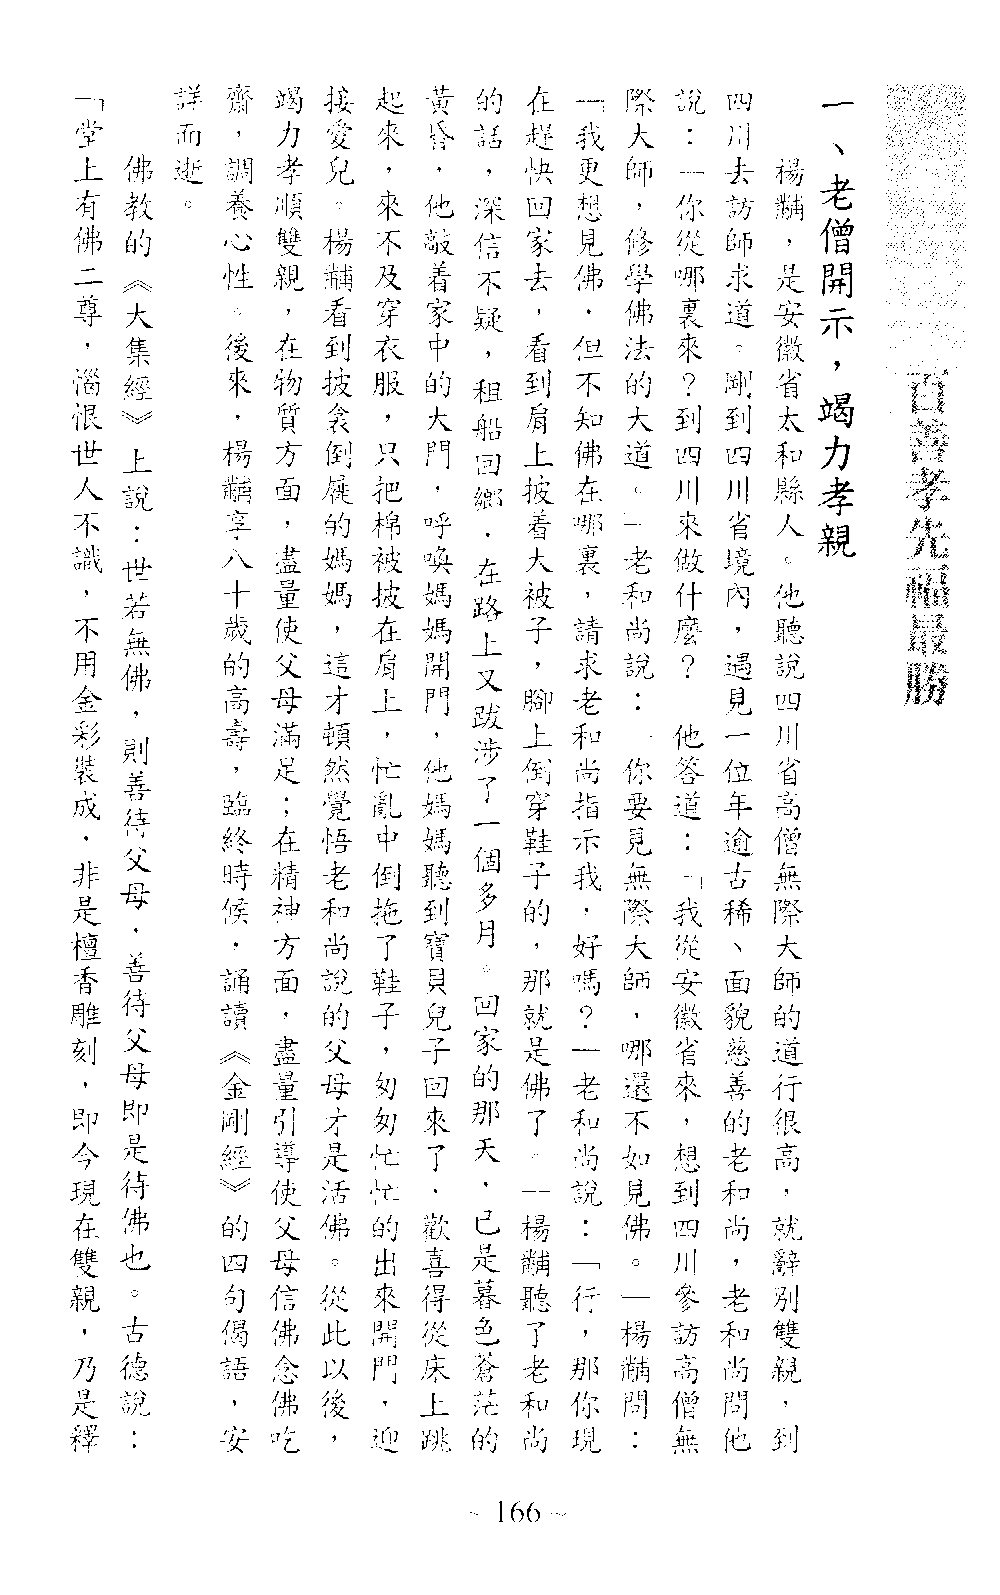 百善孝先福最勝
一、老僧開示，竭力孝親
楊黼，是安徽省太和縣人。他聽說四川省高僧無際大師的道行很高，就辭別雙親，到
四川去訪師求道。剛到四川省境內，遇見一位年逾古稀、面貌慈善的老和尚，老和尚問他
說：「你從哪裏來？到四川來做什麼？」他答道：「我從安徽省來，想到四川參訪高僧無
際大師，修學佛法的大道。」老和尚說：「你要見無際大師，哪還不如見佛。」楊黼問：
「我更想見佛，但不知佛在哪裏，請求老和尚指示我，好嗎？」老和尚說：「行，那你現
在趕快回家去，看到肩上披着大被子，腳上倒穿鞋子的，那就是佛了。」楊黼聽了老和尚
的話，深信不疑，租船回鄉，在路上又跋涉了一個多月。回家的那天，已是暮色蒼茫的
黃昏，他敲着家中的大門，呼喚媽媽開門，他媽媽聽到寶貝兒子回來了，歡喜得從床上跳
起來，來不及穿衣服，只把棉被披在肩上，忙亂中倒拖了鞋子，匆匆忙忙的出來開門，迎
接愛兒。楊黼看到披衾倒屣的媽媽，這才頓然覺悟老和尚說的父母才是活佛。從此以後，
竭力孝順雙親，在物質方面，盡量使父母滿足；在精神方面，盡量引導使父母信佛念佛吃
齋，調養心性。後來，楊黼享八十歲的高壽，臨終時候，誦讀《金剛經》的四句偈語，安
詳而逝。
佛教的《大集經》上說：世若無佛，則善待父母，善待父母即是待佛也。古德說：
「堂上有佛二尊，惱恨世人不識，不用金彩裝成，非是檀香雕刻，即今現在雙親，乃是釋
~ 166 ~